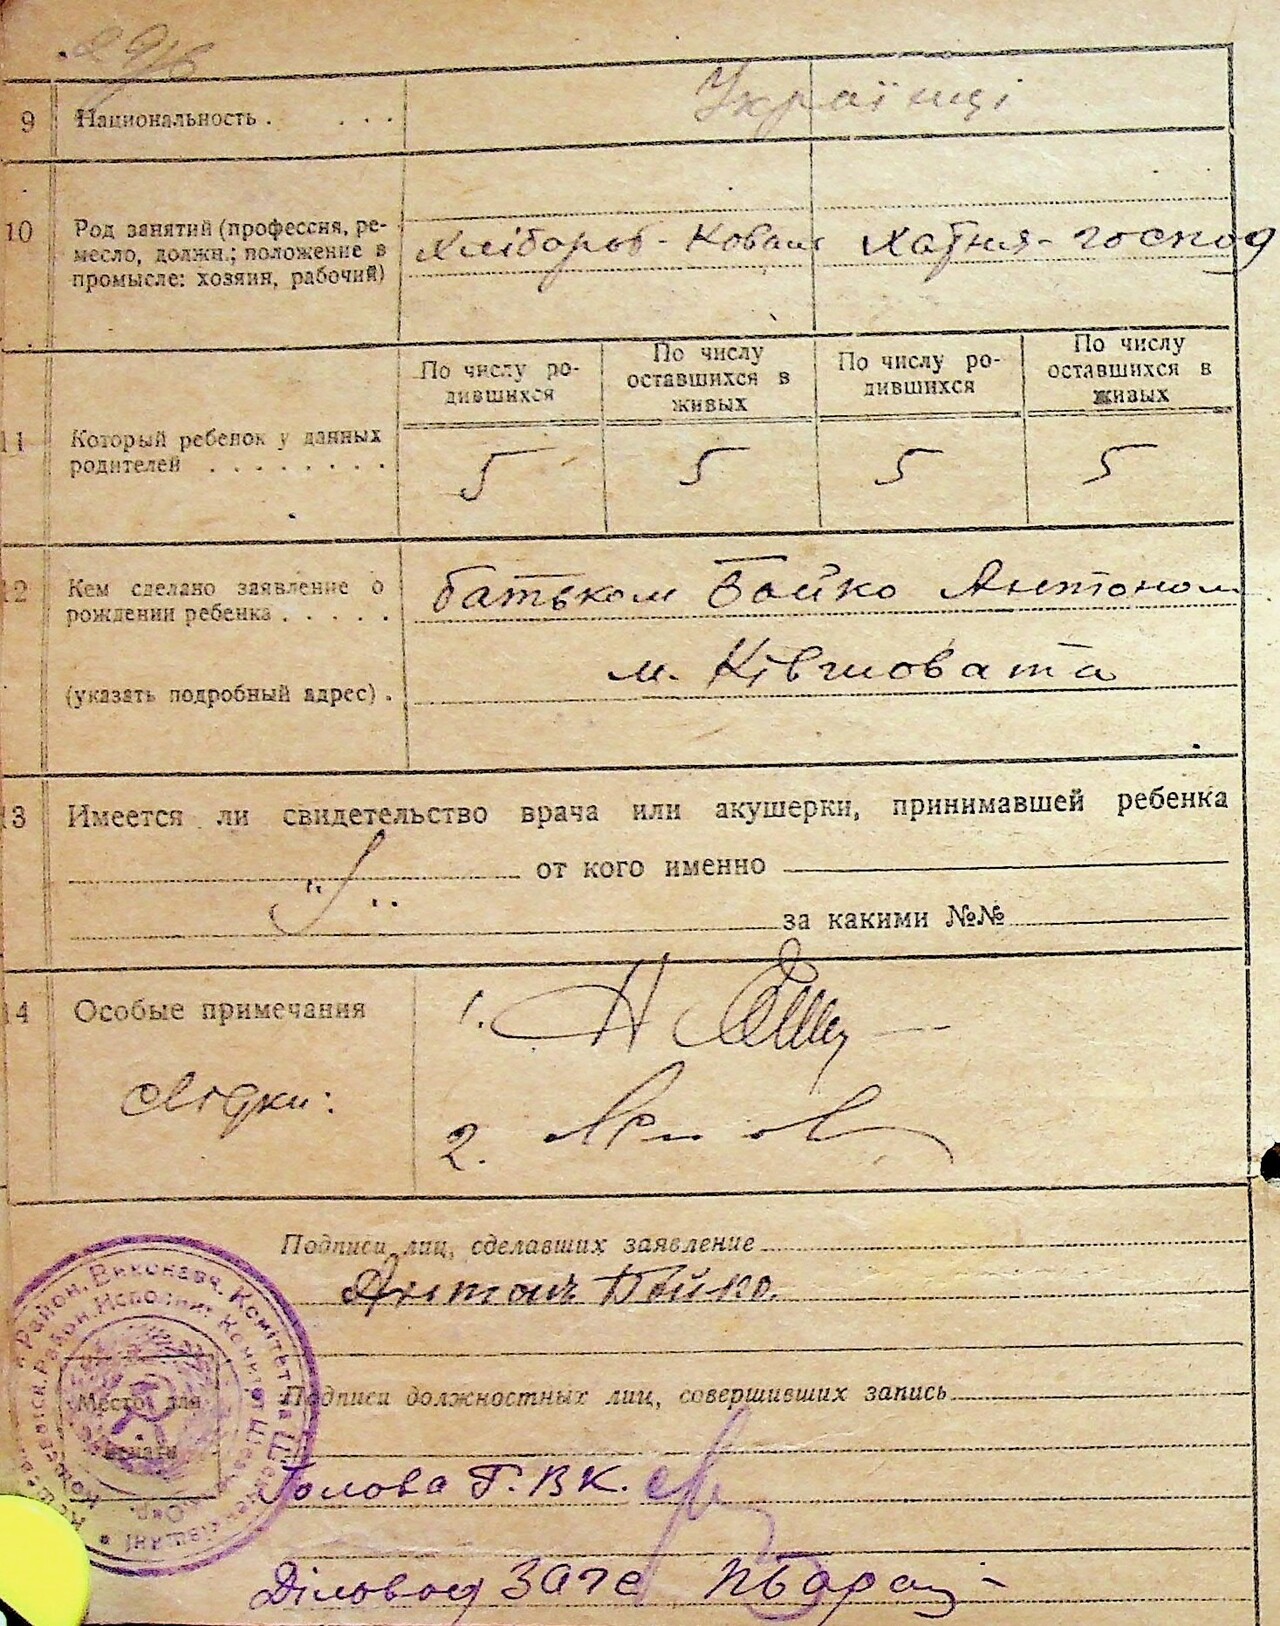 9 Национальность . . . .
Українці
10 Род занятий (профессия, ре-
месло, должн.; положение в
промысле: хозяин, рабочий)
Хлібороб - Коваль Хатня - господ
По числу ро-
дившихся
По числу
оставшихся в
живых
По числу ро-
дившихся
По числу
оставшихся в
живых
11 Который ребенок у данных
родителей . . . . . . . .
5 5 5 5
12 Кем сделано заявление о
рождении ребенка . . . . .
батьком Бойко Антоном
(указать подробный адрес) .
м. Ківшовата
13 Имеется ли свидетельство врача или акушерки, принимавшей ребенка
от кого именно
за какими №№
14 Особые примечания
свідки:
1.
2.
Подписи лиц, сделавших заявление
Антон Бойко.
Подписи должностных лиц, совершивших запись
Место для
печати
Район. Виконавч. Комітет
Район. Исполнит. Комитет
Голова Г.В.К.
Діловод ЗАГС